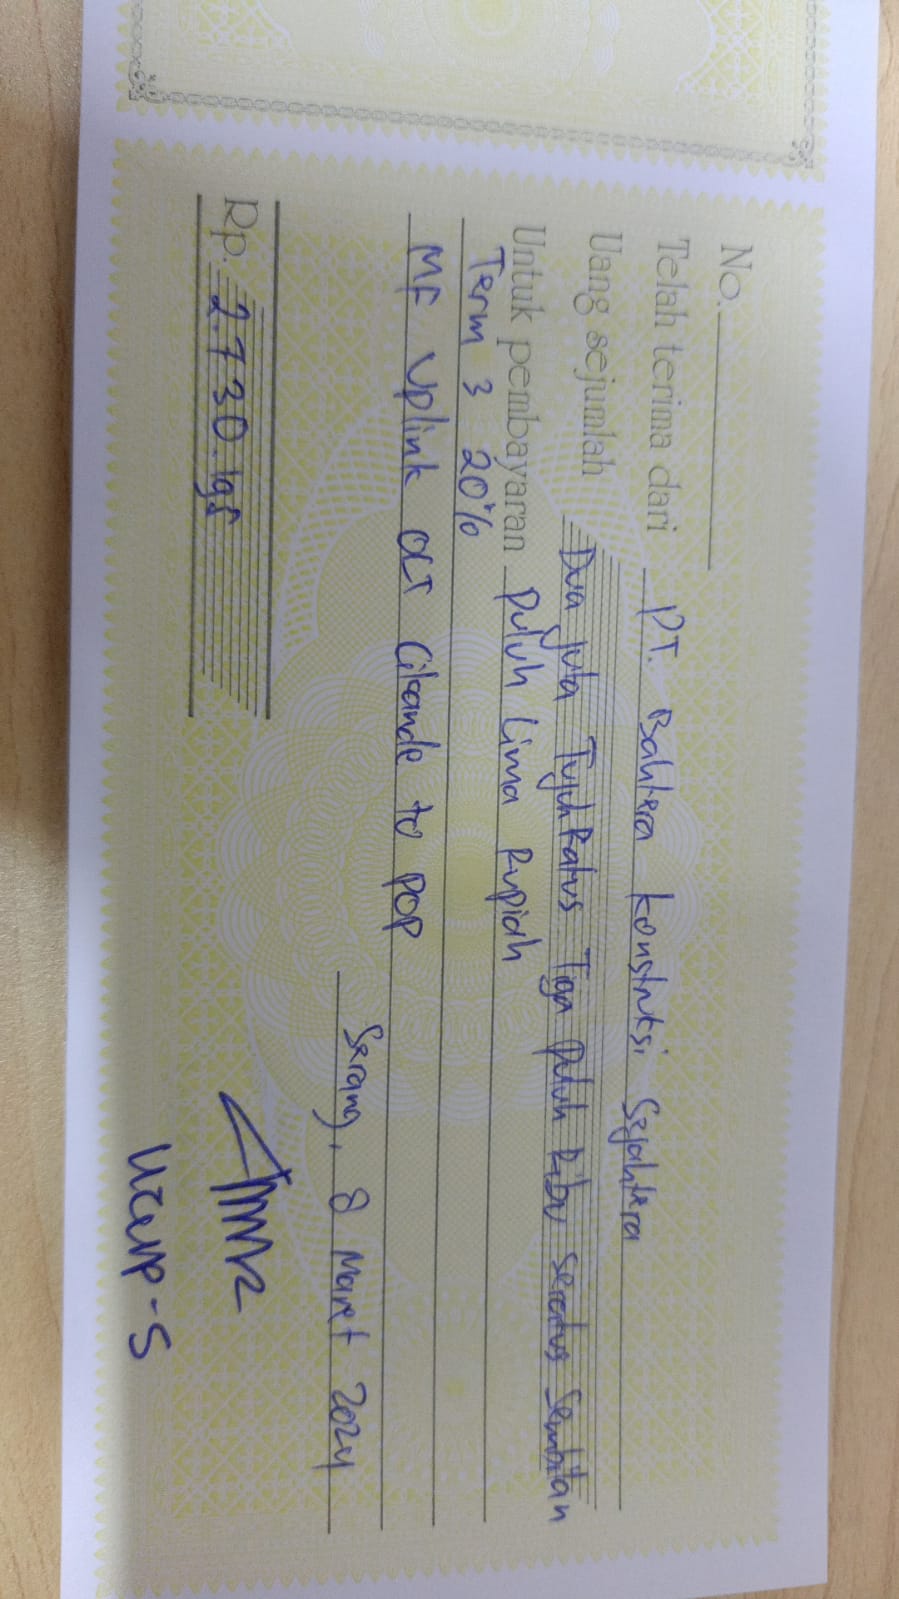 No.
Telah terima dari PT. Bahtera Konstruksi Sejahtera
Uang sejumlah Dua juta Tujuh Ratus Tiga puluh Ribu seratus Sembilan
Untuk pembayaran puluh Lima Rupiah
Term 3 20%
MF Uplink OLT Cikande to POP
Serang, 8 Maret 2024
Rp. 2.730.195
Ucup-S